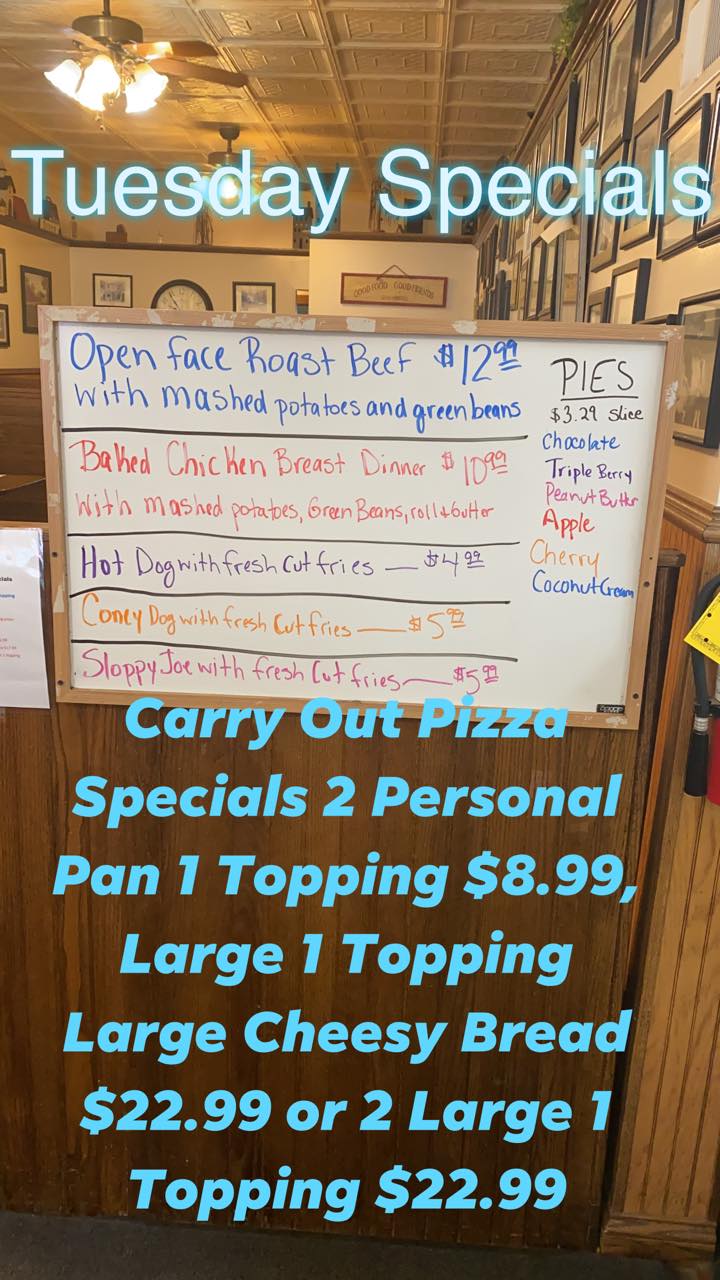 Tuesday Specials
GOOD FOOD GOOD FRIENDS
Open face Roast Beef $12.99
with mashed potatoes and green beans
Baked Chicken Breast Dinner $10.99
with mashed potatoes, Green Beans, roll + butter
Hot Dog with fresh Cut fries — $4.99
Coney Dog with fresh Cut fries — $5.99
Sloppy Joe with fresh Cut fries — $5.99
PIES
$3.29 slice
Chocolate
Triple Berry
Peanut Butter
Apple
Cherry
Coconut Cream
Carry Out Pizza
Specials 2 Personal
Pan 1 Topping $8.99,
Large 1 Topping
Large Cheesy Bread
$22.99 or 2 Large 1
Topping $22.99